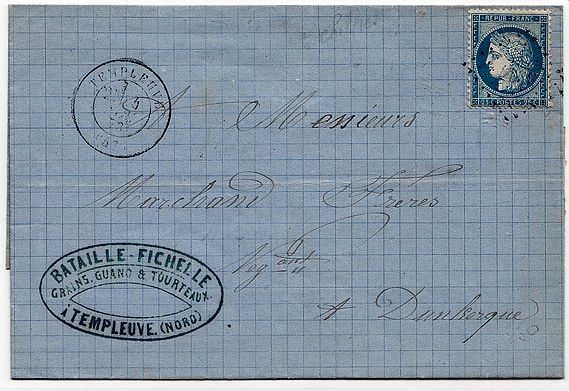 REPUB. FRANC.
25 C. POSTES 25 C.
TEMPLEUVE
A Messieurs
Marchand Frères
Négts
A Dunkerque
BATAILLE-FICHELLE
GRAINS. GUANO & TOURTEAUX.
A TEMPLEUVE. (NORD)